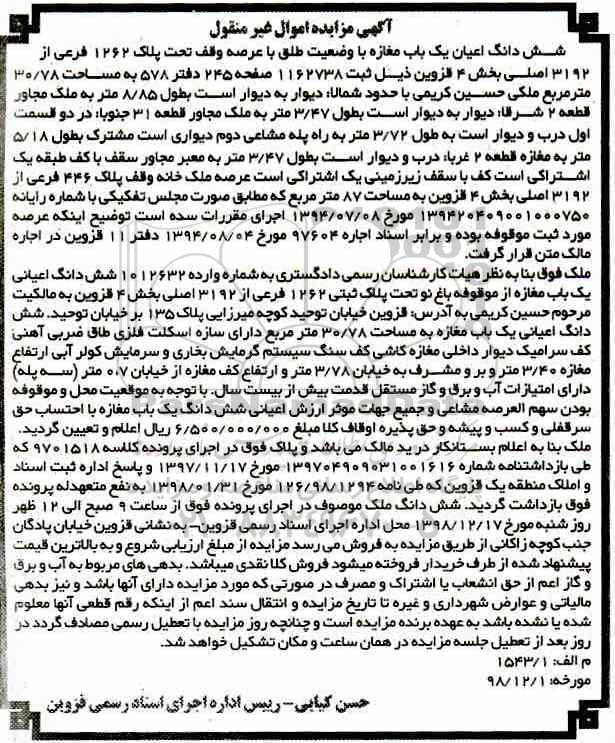 آگهی مزایده اموال غیر منقول
شش دانگ اعیان یک باب مغازه با وضعیت طلق با عرصه وقف تحت پلاک ۱۲۶۲ فرعی از
۳۱۹۲ اصلی بخش ۴ قزوین ذیل ثبت ۱۱۶۲۷۳۸ صفحه ۲۴۵ دفتر ۵۷۸ به مساحت ۳۰/۷۸
مترمربع ملکی حسین کریمی با حدود شمالا: دیوار به دیوار است بطول ۸/۸۵ متر به ملک مجاور
قطعه ۲ شرقا: دیوار به دیوار است بطول ۳/۴۷ متر به ملک مجاور قطعه ۳۱ جنوبا: در دو قسمت
اول درب و دیوار است به طول ۳/۷۲ متر به راه پله مشاعی دوم دیواری است مشترک بطول ۵/۱۸
متر به مغازه قطعه ۲ غربا: درب و دیوار است بطول ۳/۴۷ متر به معبر مجاور سقف با کف طبقه یک
اشتراکی است کف با سقف زیرزمینی یک اشتراکی است عرصه ملک خانه وقف پلاک ۴۴۶ فرعی از
۳۱۹۲ اصلی بخش ۴ قزوین به مساحت ۸۷ متر مربع که مطابق صورت مجلس تفکیکی با شماره رایانه
۱۳۹۴۲۰۴۰۹۰۰۱۰۰۰۷۵۰ مورخ ۱۳۹۴/۰۷/۰۸ اجرای مقررات سده است توضیح اینکه عرصه
مورد ثبت موقوفه بوده و برابر اسناد اجاره ۹۷۶۰۴ مورخ ۱۳۹۴/۰۸/۰۴ دفتر ۱۱ قزوین در اجاره
مالک متن قرار گرفت.
ملک فوق بنا به نظر هیات کارشناسان رسمی دادگستری به شماره وارده ۱۰۱۲۶۳۲ شش دانگ اعیانی
یک باب مغازه از موقوفه باغ نو تحت پلاک ثبتی ۱۲۶۲ فرعی از ۳۱۹۲ اصلی بخش ۴ قزوین به مالکیت
مرحوم حسین کریمی به آدرس: قزوین خیابان توحید کوچه میرزایی پلاک ۱۳۵ بر خیابان توحید. شش
دانگ اعیانی یک با مغازه به مساحت ۳۰/۷۸ متر مربع دارای سازه اسکلت فلزی طاق ضربی آهنی
کف سرامیک دیوار داخلی مغازه کاشی کف سنگ سیستم گرمایش بخاری و سرمایش کولر آبی ارتفاع
مغازه ۳/۴۰ متر و بر و مشرف به خیابان ۳/۷۸ متر و ارتفاع کف مغازه از خیابان ۰/۷ متر (سه پله)
دارای امتیازات آب و برق و گاز مستقل قدمت بیش از بیست سال. با توجه به موقعیت محل و موقوفه
بودن سهم العرصه مشاعی و جمیع جهات موثر ارزش اعیانی شش دانگ یک باب مغازه با احتساب حق
سرقفلی و کسب و پیشه و حق پذیره اوقاف کلا مبلغ ۶/۵۰۰/۰۰۰/۰۰۰ ریال اعلام و تعیین گردید.
ملک بنا به اعلام بستانکار در ید مالک می باشد و پلاک فوق در اجرای پرونده کلاسه ۹۷۰۱۵۱۸ که
طی بازداشتنامه شماره ۱۳۹۷۰۴۹۰۹۰۳۱۰۰۱۶۱۶ مورخ ۱۳۹۷/۱۱/۱۷ و پاسخ اداره ثبت اسناد
و املاک منطقه یک قزوین که طی نامه ۱۲۶/۹۸/۱۲۹۴ مورخ ۱۳۹۸/۰۱/۳۱ به نفع متعهدله پرونده
فوق بازداشت گردید. شش دانگ ملک موصوف در اجرای پرونده فوق از ساعت ۹ صبح الی ۱۲ ظهر
روز شنبه مورخ ۱۳۹۸/۱۲/۱۷ محل اداره اجرای اسناد رسمی قزوین- به نشانی قزوین خیابان پادگان
جنب کوچه زاکانی از طریق مزایده به فروش می رسد مزایده از مبلغ ارزیابی شروع و به بالاترین قیمت
پیشنهاد شده از طرف خریدار فروخته میشود فروش کلا نقدی میباشد. بدهی های مربوط به آب و برق
و گاز اعم از حق انشعاب یا اشتراک و مصرف در صورتی که مورد مزایده دارای آنها باشد و نیز بدهی
مالیاتی و عوارض شهرداری و غیره تا تاریخ مزایده و انتقال سند اعم از اینکه رقم قطعی آنها معلوم
شده یا نشده باشد به عهده برنده مزایده است و چنانچه روز مزایده با تعطیل رسمی مصادف گردد در
روز بعد از تعطیل جلسه مزایده در همان ساعت و مکان تشکیل خواهد شد.
م الف: ۱۵۴۳/۱
مورخه: ۹۸/۱۲/۱
حسن کیایی- رییس اداره اجرای اسناد رسمی قزوین